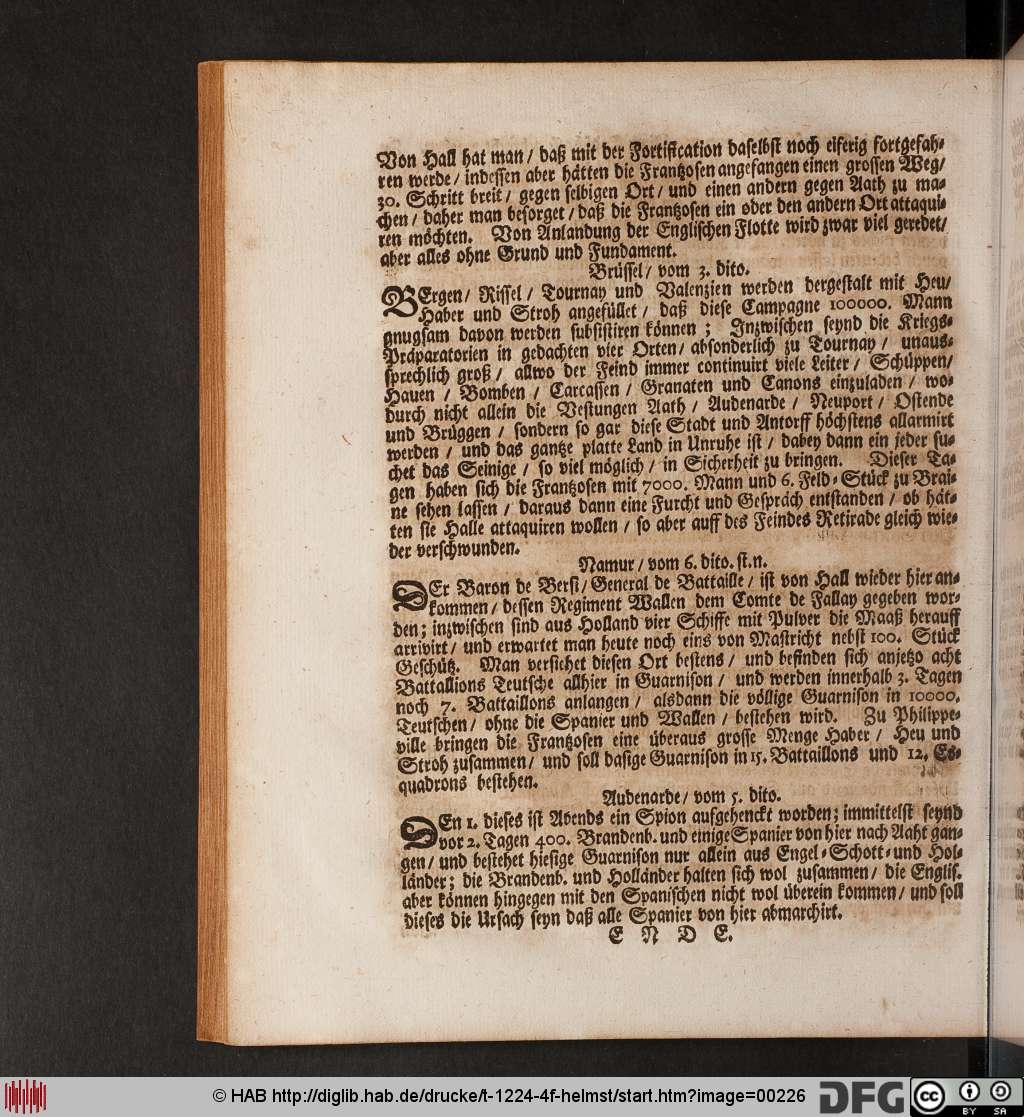 Von Hall hat man / daß mit der Fortification daselbst noch eiferig fortgefah-
ren werde / indessen aber hätten die Frantzosen angefangen einen grossen Weg/
30. Schritt breit / gegen selbigen Ort / und einen andern gegen Aath zu ma-
chen / daher man besorget / daß die Frantzosen ein oder den andern Ort attaqui-
ren möchten. Von Anlandung der Englischen Flotte wird zwar viel geredet/
aber alles ohne Grund und Fundament.
Brüssel / vom 3. dito.
BErgen / Rissel / Tournay und Valenzien werden dergestalt mit Heu/
Haber und Stroh angefüllet / daß diese Campagne 100000. Mann
gnugsam davon werden subsistiren können ; Inzwischen seynd die Kriegs-
Präparatorien in gedachten vier Orten / absonderlich zu Tournay / unaus-
sprechlich groß / allwo der Feind immer continuirt viele Leiter / Schüppen/
Hauen / Bomben / Carcassen / Granaten und Canons einzuladen / wo-
durch nicht allein die Vestungen Aath / Audenarde / Neuport / Ostende
und Brüggen / sondern so gar diese Stadt und Antorff höchstens allarmirt
werden / und das gantze platte Land in Unruhe ist / dabey dann ein jeder su-
chet das Seinige / so viel möglich / in Sicherheit zu bringen. Dieser Ta-
gen haben sich die Frantzosen mit 7000. Mann und 6. Feld-Stück zu Brai-
ne sehen lassen / daraus dann eine Furcht und Gespräch entstanden / ob hät-
ten sie Halle attaquiren wollen / so aber auff des Feindes Retirade gleich wie-
der verschwunden.
Namur / vom 6. dito. st. n.
DEr Baron de Bersi / General de Bataille / ist von Hall wieder hier an-
kommen / dessen Regiment Wallen dem Comte de Fallay gegeben wor-
den ; inzwischen sind aus Holland vier Schiffe mit Pulver die Maaß herauff
arrivirt / und erwartet man heute noch eins von Mastricht nebst 100. Stück
Geschütz. Man versiehet diesen Ort bestens / und befinden sich anjetzo acht
Battallions Teutsche allhier in Guarnison / und werden innerhalb 3. Tagen
noch 7. Battaillons anlangen / alsdann die völlige Guarnison in 10000.
Teutschen / ohne die Spanier und Wallen / bestehen wird. Zu Philippe-
ville bringen die Frantzosen eine überaus grosse Menge Haber / Heu und
Stroh zusammen / und soll dasige Guarnison in 15. Battaillons und 12. Es-
quadrons bestehen.
Audenarde / vom 5. dito.
DEn 1. dieses ist Abends ein Spion auffgehenckt worden ; immittelst seynd
vor 2. Tagen 400. Brandenb. und einige Spanier von hier nach Aaht gan-
gen / und bestehet hiesige Guarnison nur allein aus Engel-Schott-und Hol-
länder ; die Brandenb. und Holländer halten sich wol zusammen / die Englis.
aber können hingegen mit den Spanischen nicht wol überein kommen / und soll
dieses die Ursach seyn daß alle Spanier von hier abmarchirt.
E N D E.
© HAB http://diglib.hab.de/drucke/t-1224-4f-helmst/start.htm?image=00226
DFG
cc BY SA